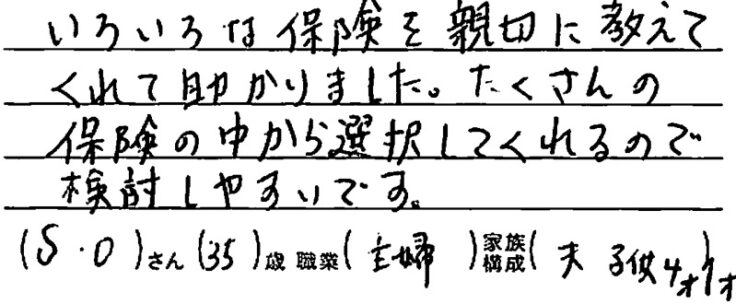 いろいろな保険を親切に教えて
くれて助かりました。たくさんの
保険の中から選択してくれるので
検討しやすいです。
(S・O)さん(35)歳 職業(主婦)家族構成(夫 子供4才1才)